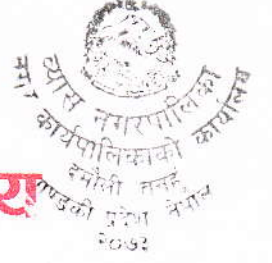 व्यास नगरपालिका
नगर कार्यपालिकाको कार्यालय
दमौली तनहुँ
गण्डकी प्रदेश नेपाल
२०७३
य